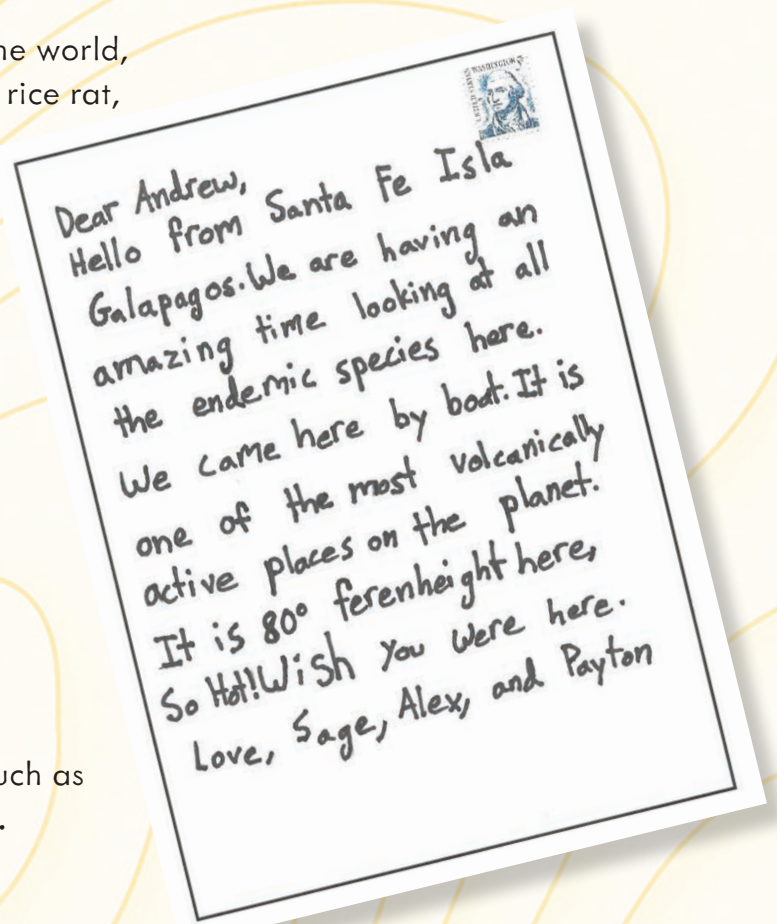 he world,
rice rat,
WASHINGTON 5¢
UNITED STATES
Dear Andrew,
Hello from Santa Fe Isla
Galapagos. We are having an
amazing time looking at all
the endemic species here.
We came here by boat. It is
one of the most volcanically
active places on the planet.
It is 80° ferenheight here,
So Hot! Wish you were here.
Love, Sage, Alex, and Payton
uch as
.